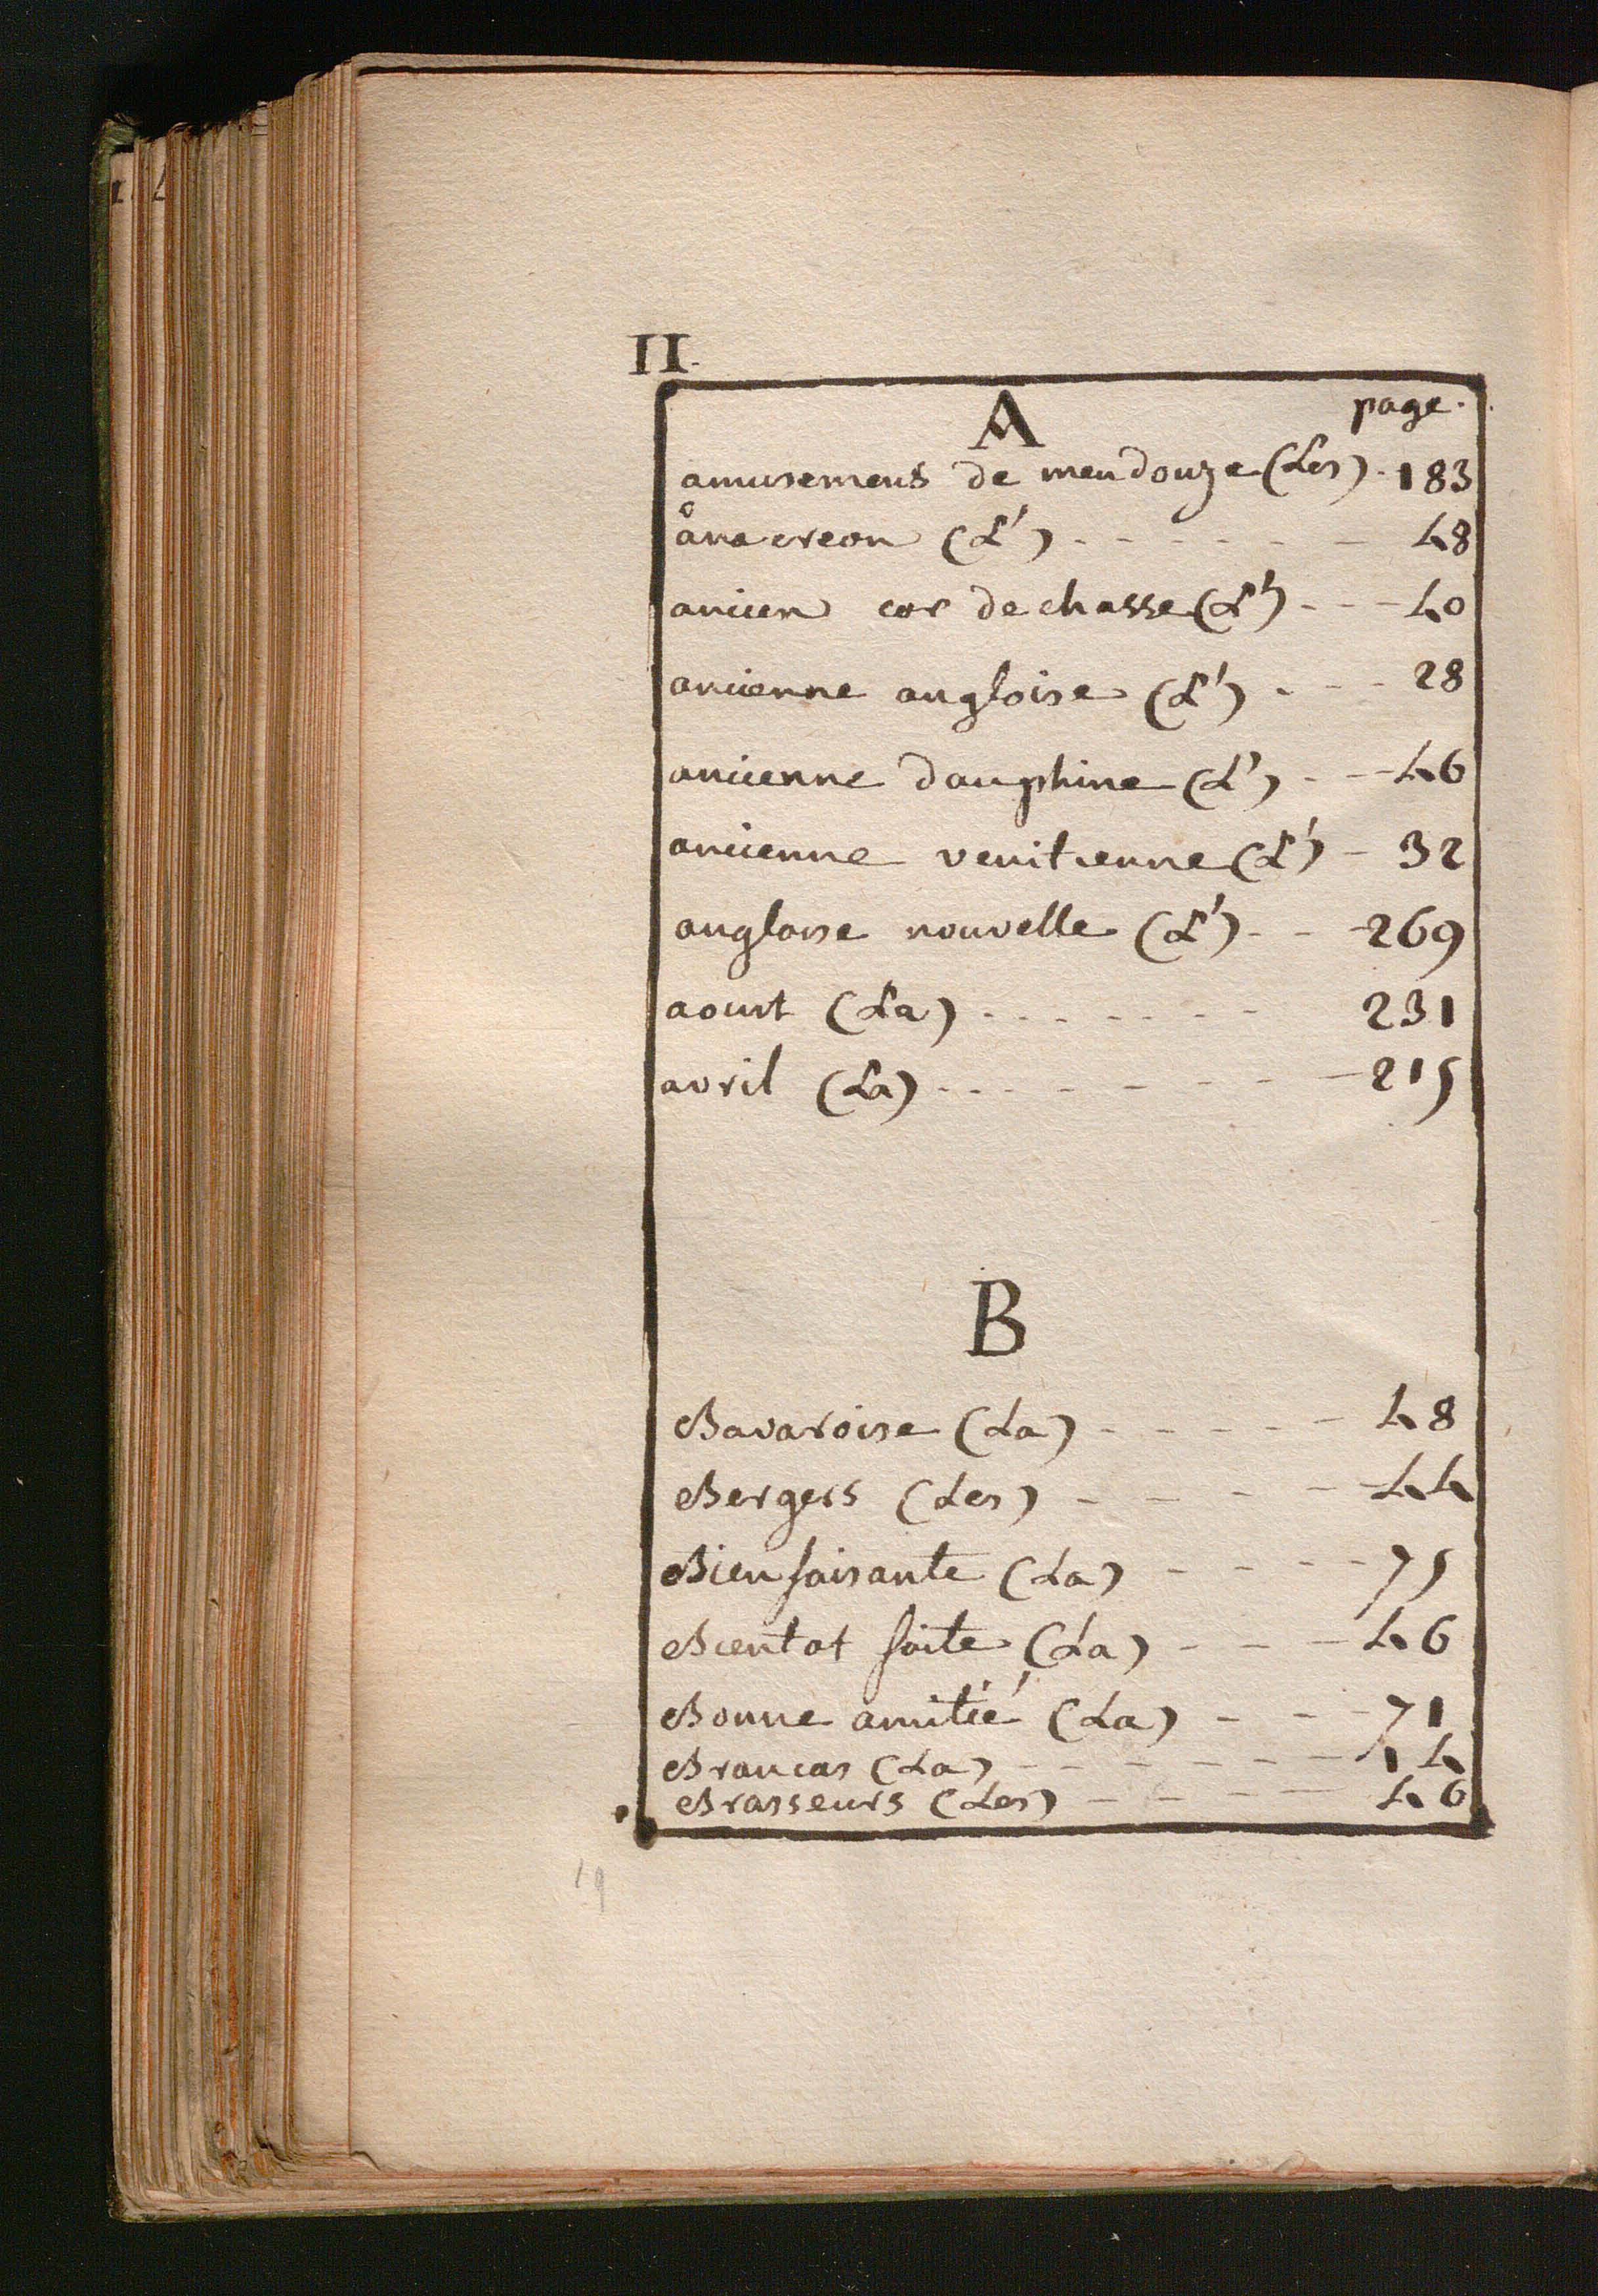 II.
A page.
amusemens de meudouze (Les) - 183
ânacreon (L') - - - - - - - 48
ancien cor de chasse (L') - - - 40
ancienne angloise (L') - - - 28
ancienne dauphine (L') - - - 46
ancienne venitienne (L') - 32
angloise nouvelle (L') - - - 269
aoust (La) - - - - - - - 231
avril (La) - - - - - - - - 215
B
Bavaroise (La) - - - - - 48
Bergers (Les) - - - - - 44
Bienfaisante (La) - - - - 75
Bientot faite (La) - - - 46
Bonne amitié (La) - - - 71
Brancas (La) - - - - - - - 14
Brasseurs (Les) - - - - - 46
19